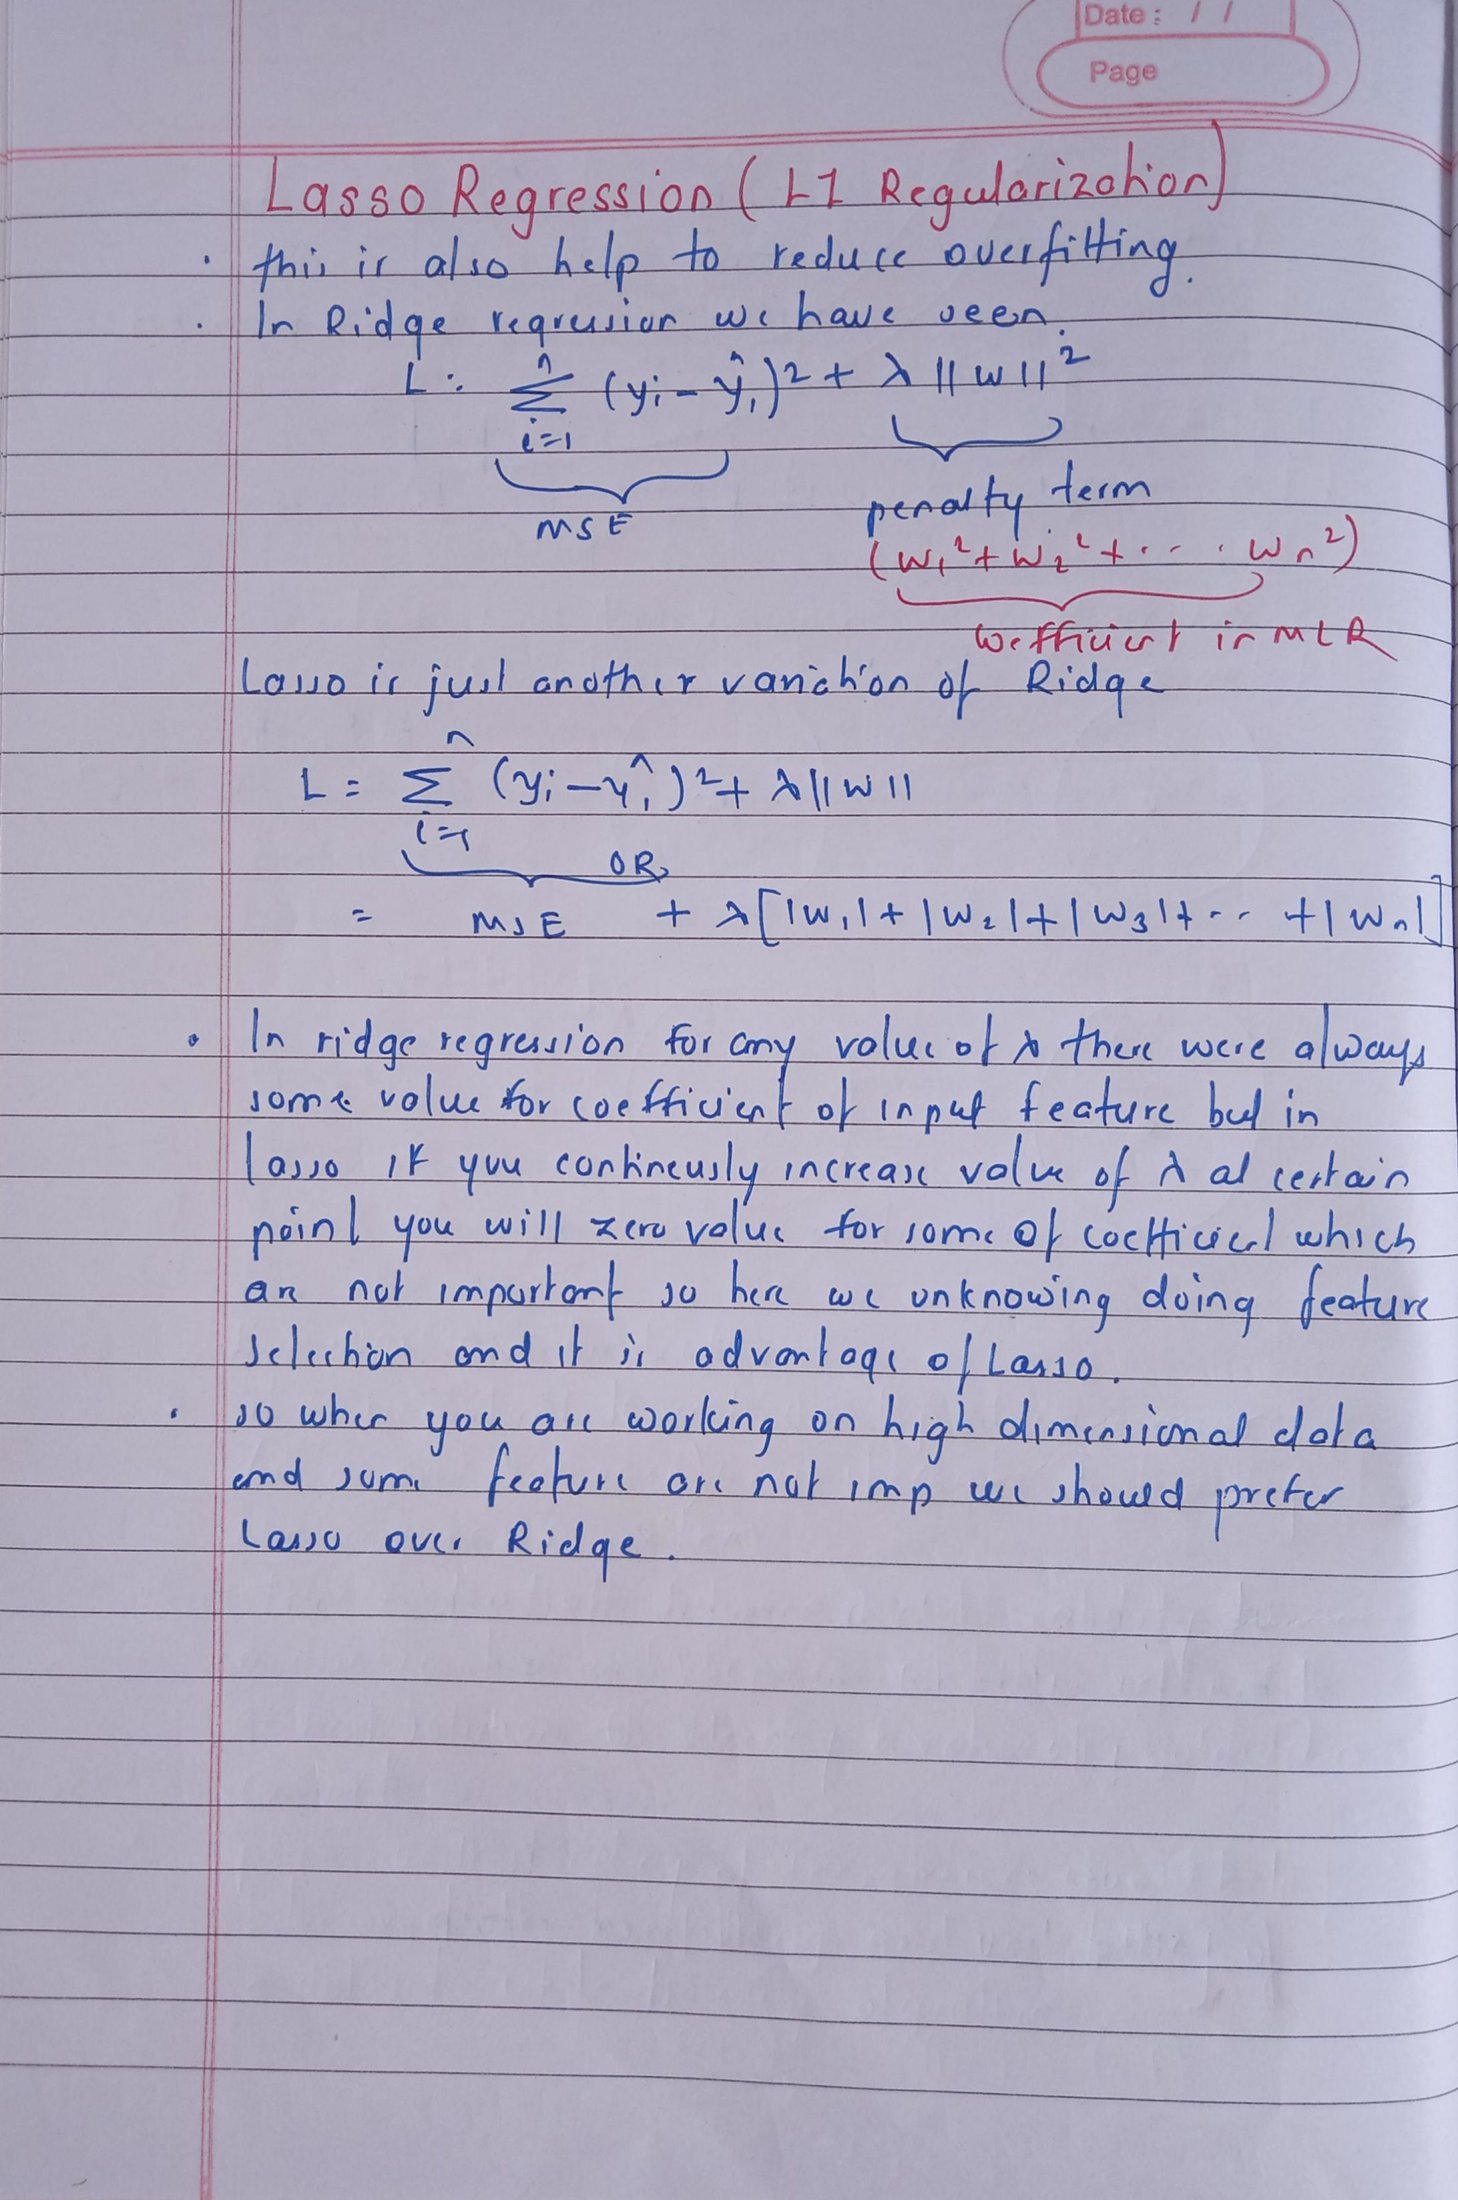 Date : / /
Page
Lasso Regression ( L1 Regularization)
. this is also help to reduce overfitting.
. In Ridge regression we have seen.
L : n Σ i=1 (yi - ŷi)² + λ ||w||²
MSE
penalty term
(w₁² + w₂² + .... wn²)
Coefficient in MLR
Lasso is just another variation of Ridge
L = n Σ i=1 (yi - ŷi)² + λ||w||
OR
= MSE + λ[|w₁| + |w₂| + |w₃| + .. + |wn|]
. In ridge regression for any value of λ there were always
some value for coefficient of input feature but in
lasso if you contineusly increase value of λ at certain
point you will zero value for some of coefficient which
are not important so here we unknowing doing feature
selection and it is advantage of Lasso.
. so when you are working on high dimensional data
and some feature are not imp we should prefer
Lasso over Ridge.